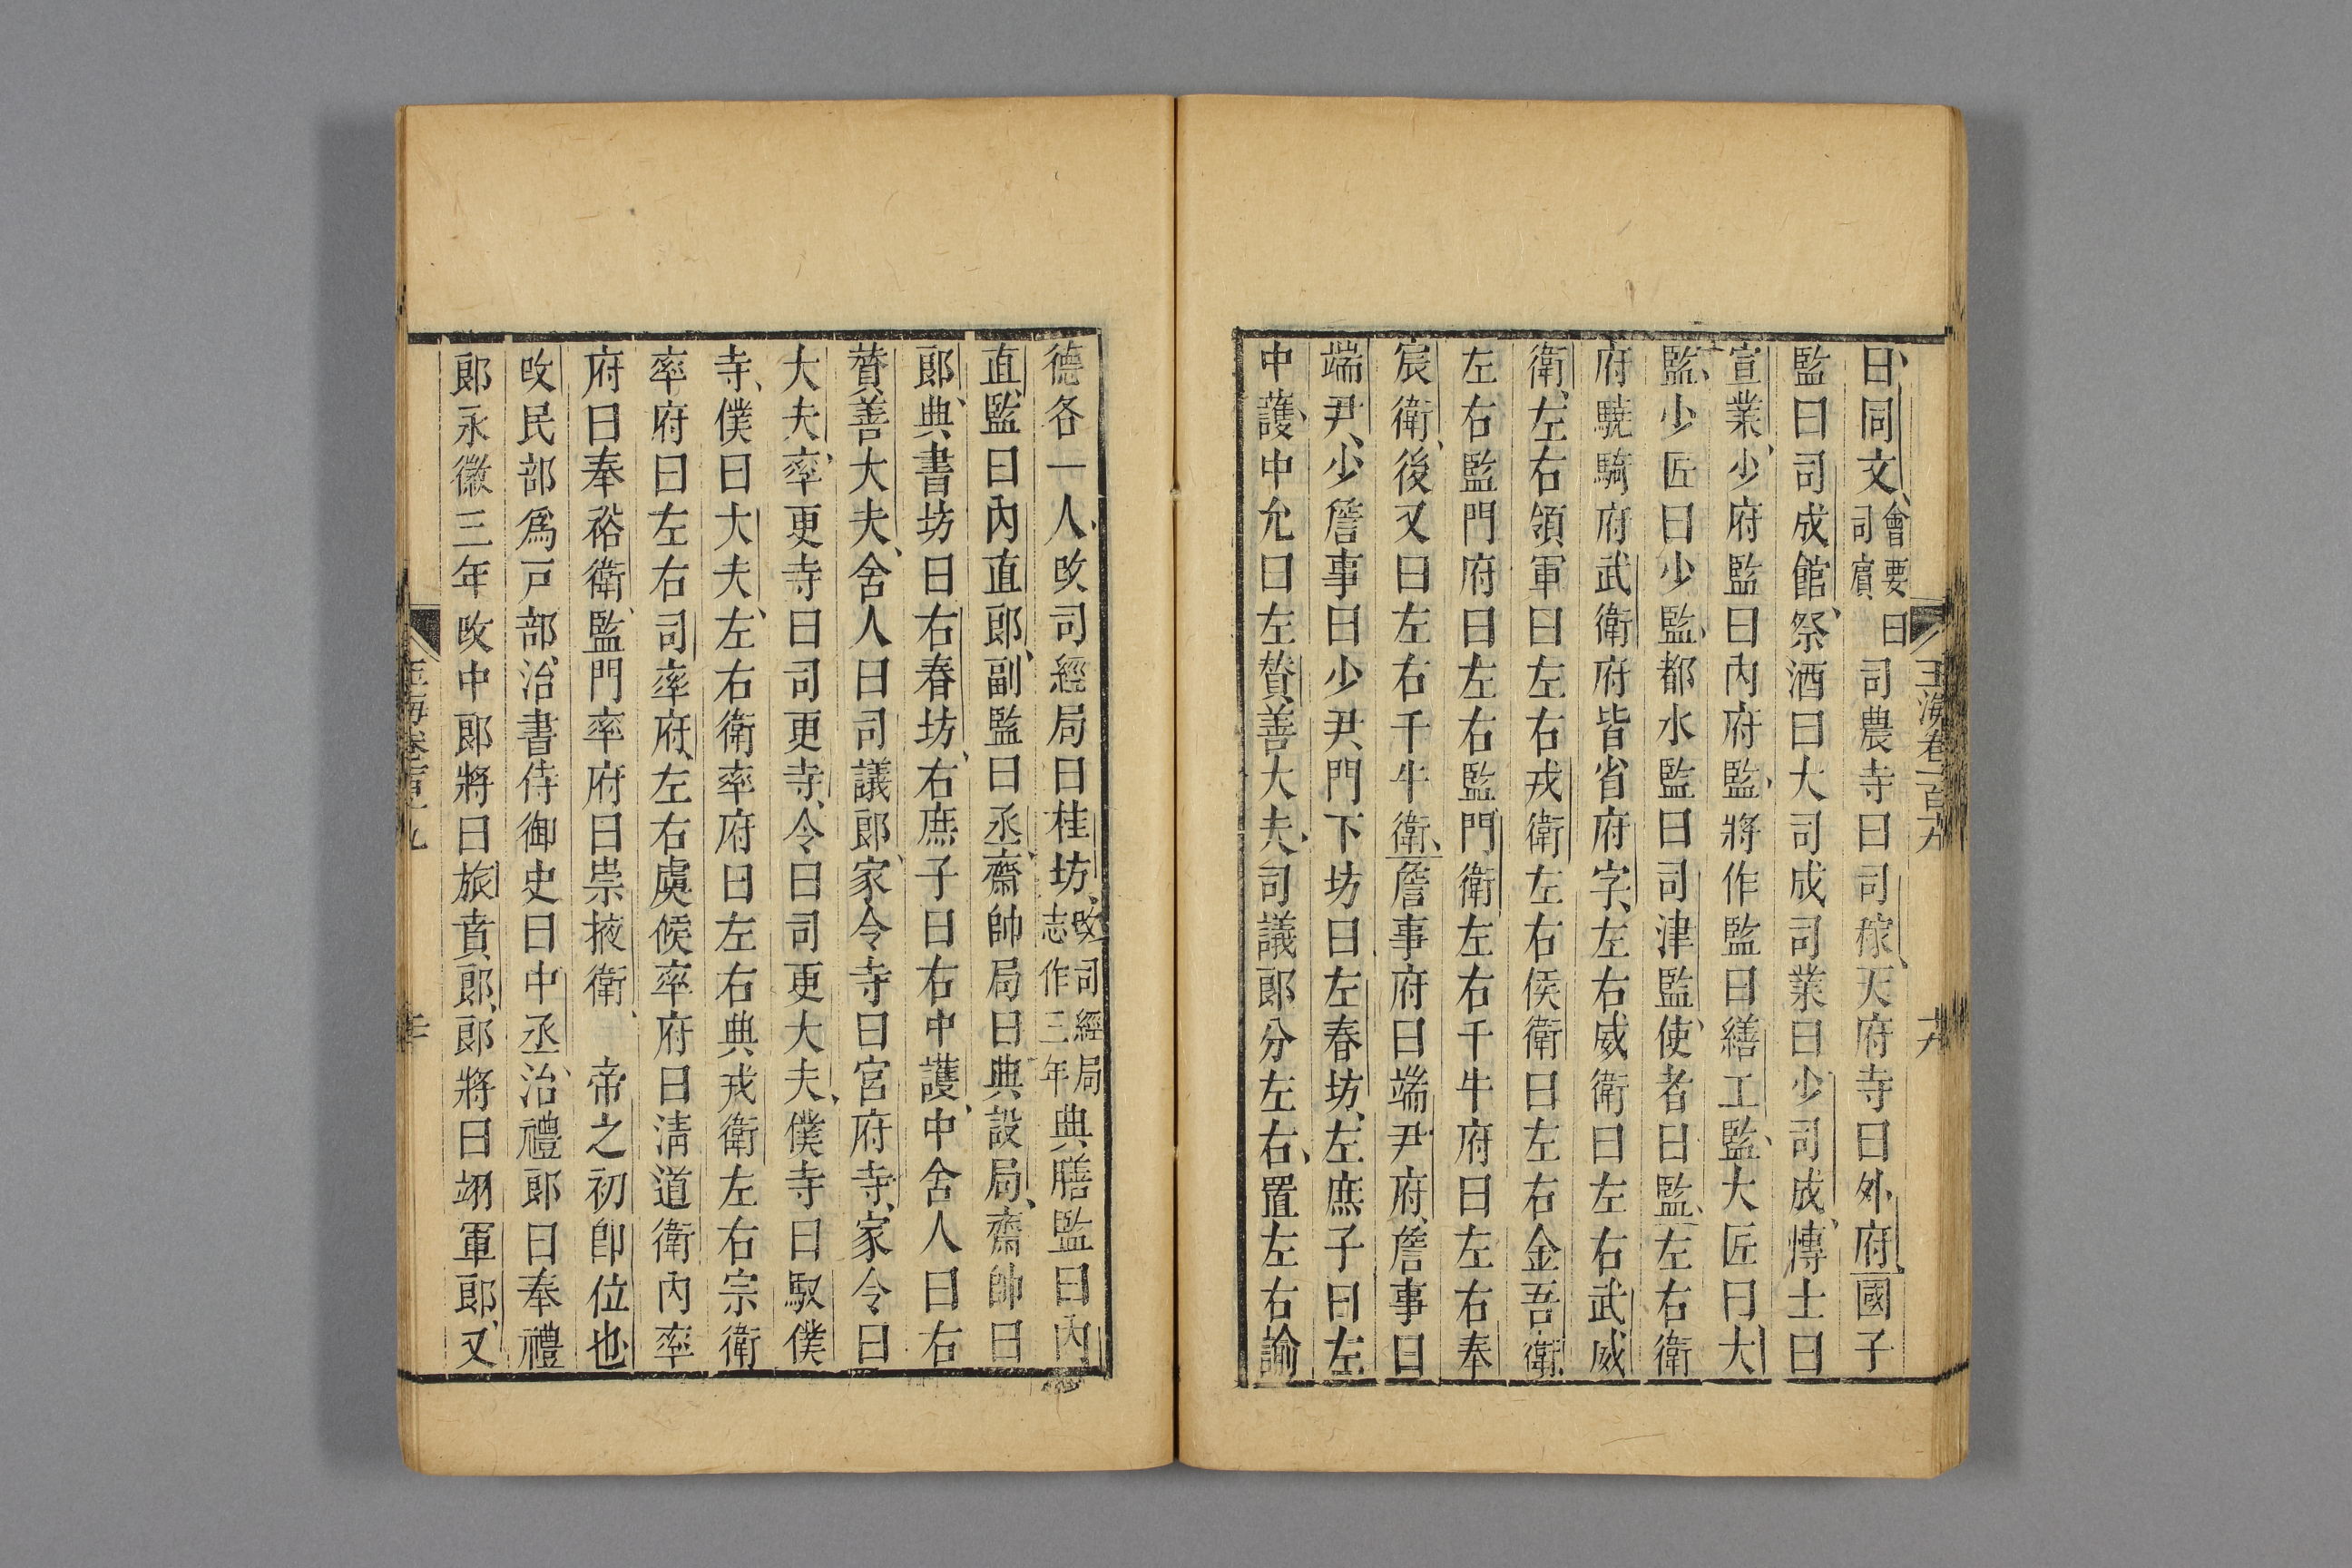 曰同文會要曰司賓司農寺曰司稼天府寺曰外府國子
監曰司成館祭酒曰大司成司業曰少司成博士曰
宣業少府監曰內府監將作監曰繕工監大匠曰大
監少匠曰少監都水監曰司津監使者曰監左右衛
府驍騎府武衛府皆省府字左右威衛曰左右武威
衛左右領軍曰左右戎衛左右侯衛曰左右金吾衛
左右監門府曰左右監門衛左右千牛府曰左右奉
宸衛後又曰左右千牛衛詹事府曰端尹府詹事曰
端尹少詹事曰少尹門下坊曰左春坊左庶子曰左
中護中允曰左贊善大夫司議郎分左右置左右諭
德各一人改司經局曰桂坊改司經局志作三年典膳監曰內
直監曰內直郎副監曰丞齋帥局曰典設局齋帥曰
郎典書坊曰右春坊右庶子曰右中護中舍人曰右
贊善大夫舍人曰司議郎家令寺曰宮府寺家令曰
大夫率更寺曰司更寺令曰司更大夫僕寺曰馭僕
寺僕曰大夫左右衛率府曰左右典戎衛左右宗衛
率府曰左右司率府左右虞候率府曰清道衛內率
府曰奉裕衛監門率府曰崇掖衛　帝之初卽位也
改民部爲戸部治書侍御史曰中丞治禮郎曰奉禮
郎永徽三年改中郎將曰旅賁郎郎將曰翊軍郎又